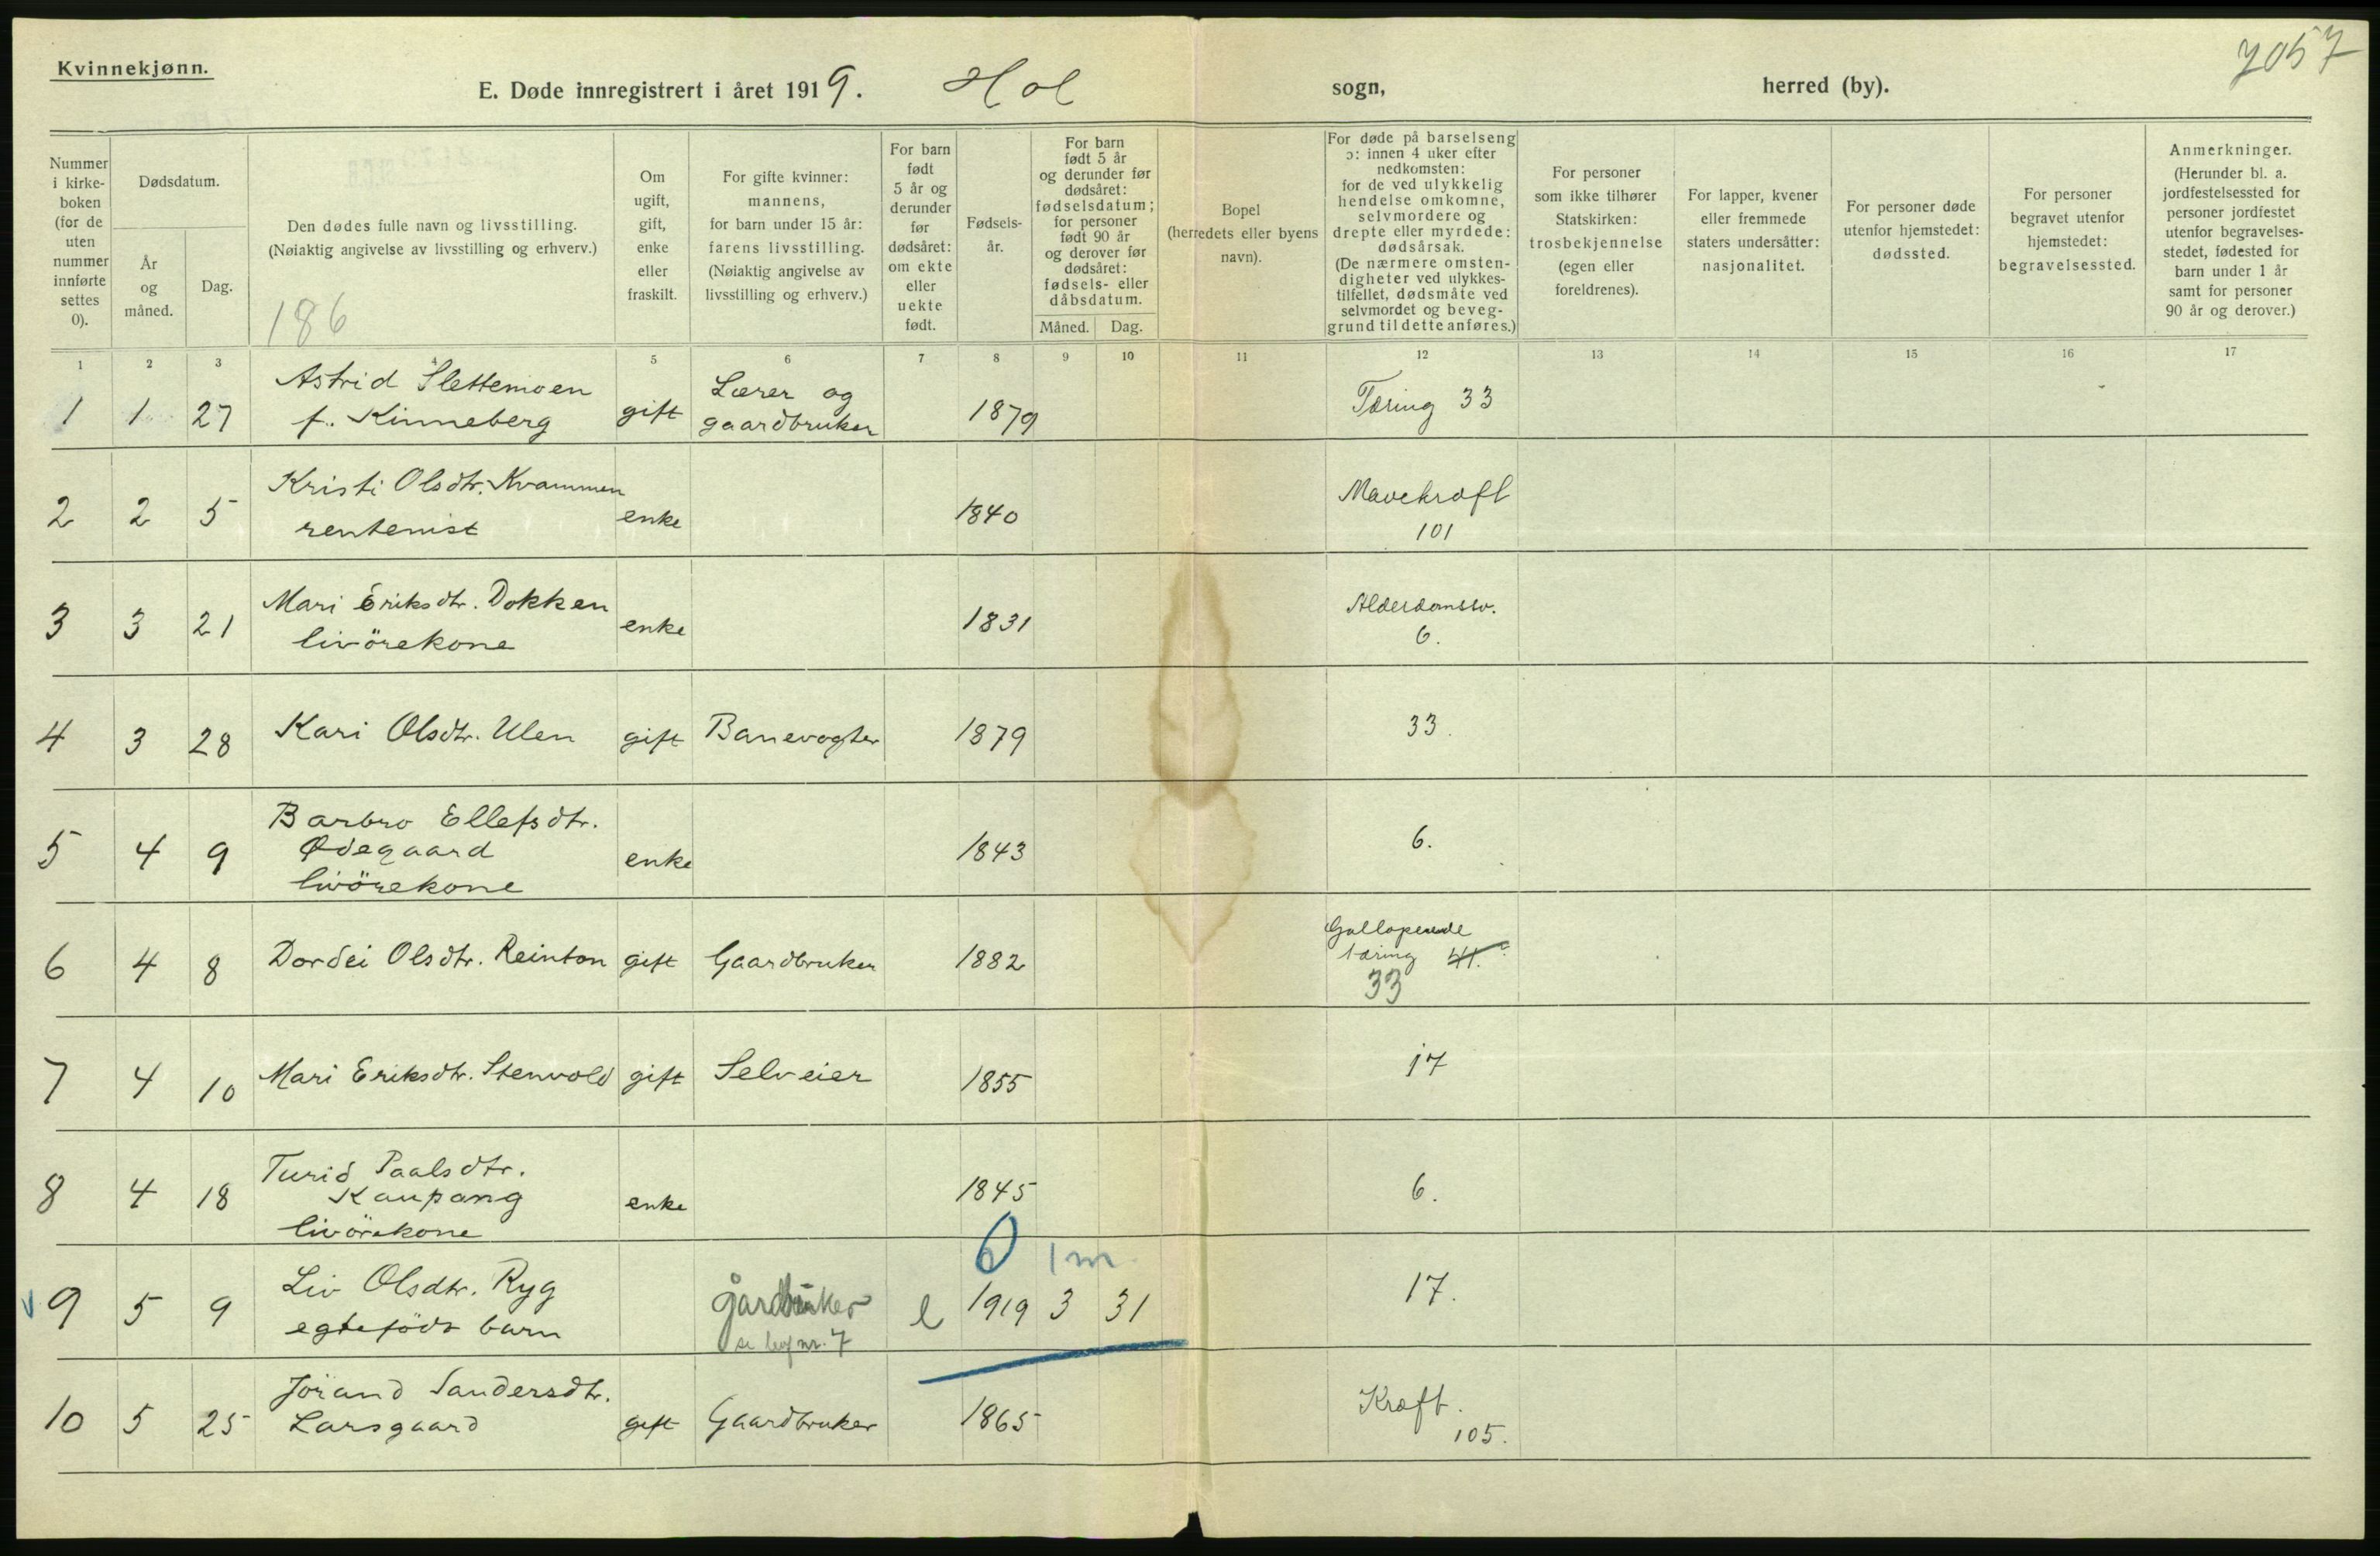 Kvinnekjønn.
7057
E. Døde innregistrert i året 1919. Hol sogn, herred (by).
Nummer i kirke- boken (for de uten nummer innførte settes 0).
Dødsdatum.
År og måned.
Dag.
Den dødes fulle navn og livsstilling.
(Nøiaktig angivelse av livsstilling og erhverv.)
186
Om ugift, gift, enke eller fraskilt.
For gifte kvinner: mannens, for barn under 15 år: farens livsstilling. (Nøiaktig angivelse av livsstilling og erhverv.)
For barn født 5 år og derunder før dødsåret: om ekte eller uekte født.
Fødsels- år.
For barn født 5 år og derunder før dødsåret: fødselsdatum; for personer født 90 år og derover før dødsåret: fødsels- eller dåbsdatum.
Måned. Dag.
Bopel (herredets eller byens navn).
For døde på barselseng ɔ: innen 4 uker efter nedkomsten: for de ved ulykkelig hendelse omkomne, selvmordere og drepte eller myrdede: dødsårsak. (De nærmere omsten- digheter ved ulykkes- tilfellet, dødsmåte ved selvmordet og beveg- grund til dette anføres.)
For personer som ikke tilhører Statskirken: trosbekjennelse (egen eller foreldrenes).
For lapper, kvener eller fremmede staters undersåtter: nasjonalitet.
For personer døde utenfor hjemstedet: dødssted.
For personer begravet utenfor hjemstedet: begravelsessted.
Anmerkninger. (Herunder bl. a. jordfestelsessted for personer jordfestet utenfor begravelses- stedet, fødested for barn under 1 år samt for personer 90 år og derover.)
1 2 3 4 5 6 7 8 9 10 11 12 13 14 15 16 17
Astrid Slettemoen Lærer og
1 1 27 f. Kinneberg gift gaardbruker 1879 Tæring 33
Kristi Olsdtr. Kvammen Mavekræft
2 2 5 rentenist enke 1840 101
Mari Eriksdtr. Dokken Alderdomssv.
3 3 21 livörekone enke 1831 6.
4 3 28 Kari Olsdtr. Ulen gift Banevogter 1879 33.
Barbro Ellefsdtr.
5 4 9 Ødegaard enke 1843 6.
livörekone
Galloperende
6 4 8 Dordei Olsdtr. Reinton gift Gaardbruker 1882 tæring 41.
33
7 4 10 Mari Eriksdtr. Stenvold gift Selveier 1855 17
Turid Paalsdtr.
8 4 18 Kaupang enke 1845 6.
livörekone
0 1 m.
Liv Olsdtr. Ryg
9 5 9 egtefödt barn gårdbruker e 1919 3 31 17.
se nr. 7
Jörand Sandersdtr. Kræft.
10 5 25 Larsgaard gift Gaardbruker 1865 105.